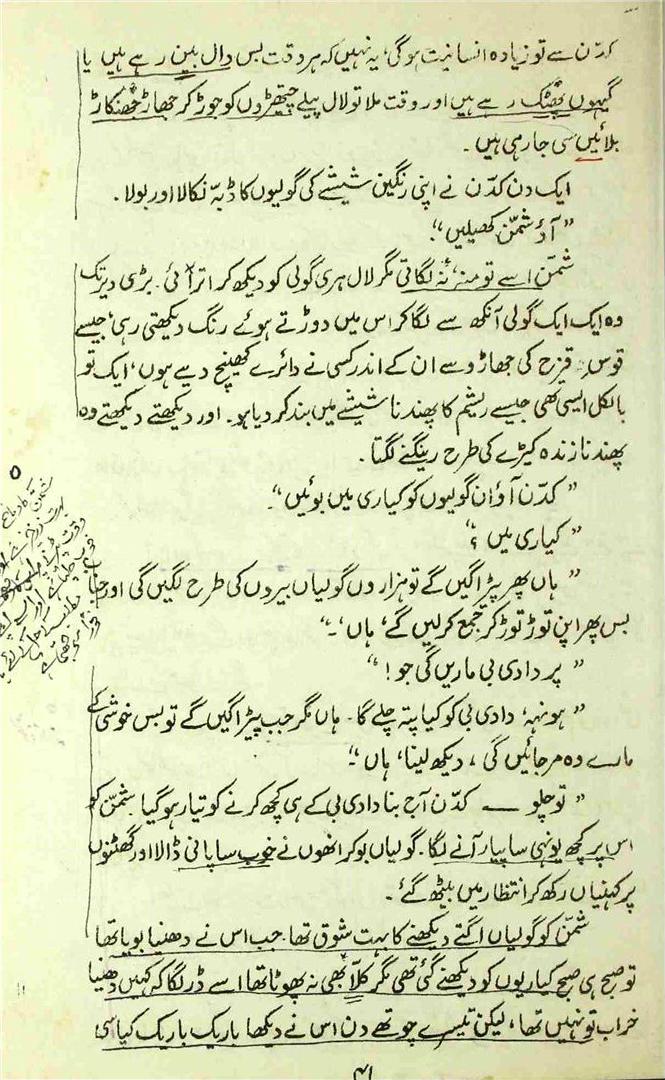 کدّن سے تو زیادہ انسانیت ہوگی، یہ نہیں کہ ہر وقت بس دال بین رہے ہیں یا
گیہوں پھٹک رہے ہیں اور وقت ملا تو لال پیلے چیتھڑوں کو جوڑ کر جھاڑ جھنکاڑ
بلائیں سی جا رہی ہیں۔
ایک دن کدّن نے اپنی رنگین شیشے کی گولیوں کا ڈبّہ نکالا اور بولا۔
”آؤ شمّن کھیلیں“۔
شمّن اسے تو منہ نہ لگاتی مگر لال ہری گولی کو دیکھ کر اتر آئی۔ بڑی دیر تک
وہ ایک ایک گولی آنکھ سے لگا کر اس میں دوڑتے ہوئے رنگ دیکھتی رہی، جیسے
قوس قزح کی جھاڑو سے ان کے اندر کسی نے دائرے کھینچ دیے ہوں، ایک تو
بالکل ایسی تھی جیسے ریشم کا پھندنا شیشے میں بند کر دیا ہو۔ اور دیکھتے دیکھتے وہ
پھندنا زندہ کیڑے کی طرح رینگنے لگتا۔
”کدّن آؤ ان گولیوں کو کیاری میں بوئیں“۔
”کیاری میں؟“
”ہاں پھر پیڑ اگیں گے تو ہزاروں گولیاں بیروں کی طرح لگیں گی اور
بس پھر اپن توڑ توڑ کر جمع کرلیں گے، ہاں“۔
”پر دادی بی ماریں گی جو!“
”ہونہہ، دادی بی کو کیا پتہ چلے گا۔ ہاں مگر جب پیڑ اگیں گے تو بس خوشی کے
مارے وہ مر جائیں گی، دیکھ لینا، ہاں“۔
”تو چلو — کدّن آج بنا دادی بی کے ہی کچھ کرنے کو تیار ہوگیا۔ شمّن کو
اس پر کچھ یونہی سا پیار آنے لگا۔ گولیاں بو کر انھوں نے خوب سا پانی ڈالا اور گھٹنوں
پر کہنیاں رکھ کر انتظار میں بیٹھ گئے۔
شمّن کو گولیاں اگتے دیکھنے کا بہت شوق تھا۔ جب اس نے دھنیا بویا تھا
تو صبح ہی صبح کیاریوں کو دیکھنے گئی تھی مگر کلّا بھی نہ پھوٹا تھا اسے ڈر لگا کہ کہیں دھنیا
خراب تو نہیں تھا، لیکن تیسرے چوتھے دن اس نے دیکھا باریک باریک کیاسی
۴۱